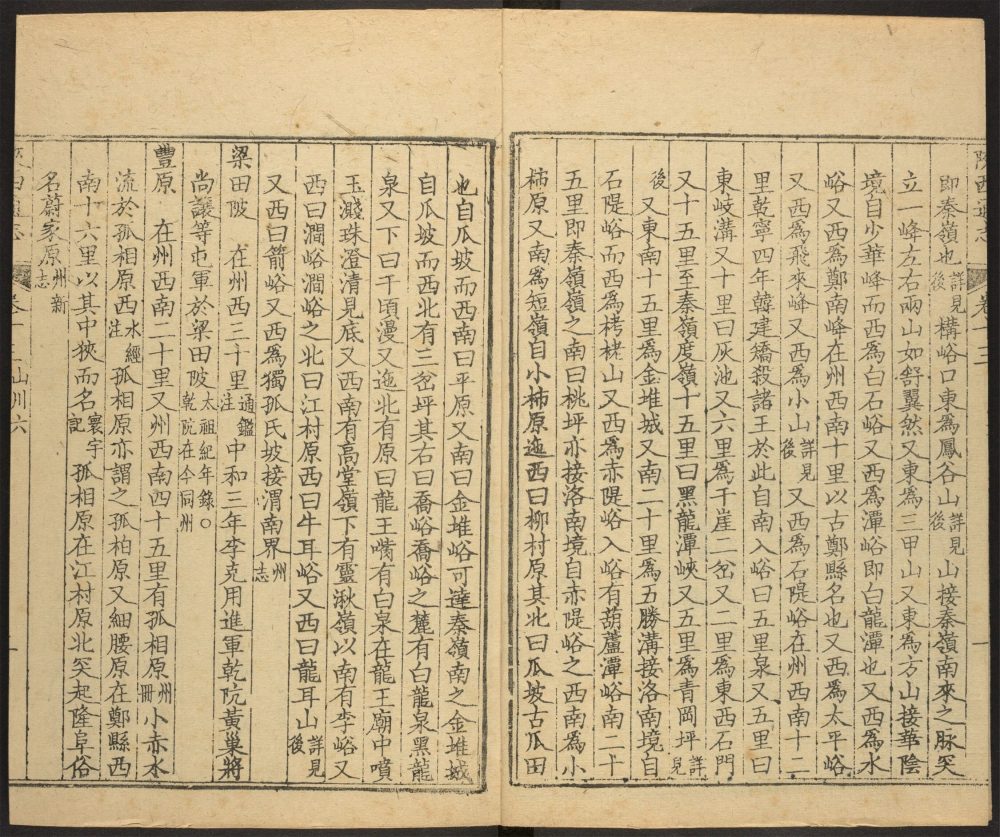 陝西通志 卷十三
即秦嶺也詳見後構峪口東為鳳谷山詳見後山接秦嶺南來之脉突
立一峰左右兩山如舒翼然又東為三甲山又東為方山接華陰
境自少華峰而西為白石峪又西為潭峪即白龍潭也又西為水
峪又西為鄭南峰在州西南十里以古鄭縣名也又西為太平峪
又西為飛來峰又西為小山詳見後又西為石隄峪在州西南十二
里乾寧四年韓建矯殺諸王於此自南入峪曰五里泉又五里曰
東岐溝又十里曰灰池又六里為干崖二岔又二里為東西石門
又十五里至秦嶺度嶺十五里曰黑龍潭峽又五里為青岡坪詳見
後又東南十五里為金堆城又南二十里為五勝溝接洛南境自
石隄峪而西為栲栳山又西為赤隄峪入峪有葫蘆潭峪南二十
五里即秦嶺嶺之南曰桃坪亦接洛南境自赤隄峪之西南為小
柿原又南為短嶺自小柿原迤西曰柳村原其北曰瓜坡古瓜田
也自瓜坡而西南曰平原又南曰金堆峪可達秦嶺南之金堆城
自瓜坡而西北有三岔坪其右曰喬峪喬峪之麓有白龍泉黑龍
泉又下曰千頃漫又迤北有原曰龍王嘴有白泉在龍王廟中噴
玉濺珠澄清見底又西南有高堂嶺下有靈湫嶺以南有李峪又
西曰澗峪澗峪之北曰江村原西曰牛耳峪又西曰龍耳山詳見後
又西曰箭峪又西為獨孤氏坡接渭南界州志
梁田陂 在州西三十里通鑑注中和三年李克用進軍乾阬黃巢將
尚讓等屯軍於梁田陂太祖紀年錄〇乾阬在今同州
豐原 在州西南二十里又州西南四十五里有孤相原州冊小赤水
流於孤相原西水經注孤相原亦謂之孤柏原又細腰原在鄭縣西
南十六里以其中狹而名寰宇記孤相原在江村原北突起隆阜俗
名蔚家原州新志